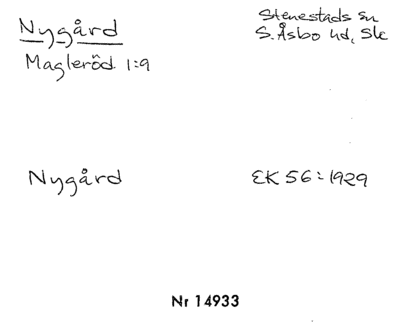 Nygård
Stenestads sn
Magleröd 1:9
S. Åsbo hd, Sk
Nygård
EK 56:1929
Nr 14933